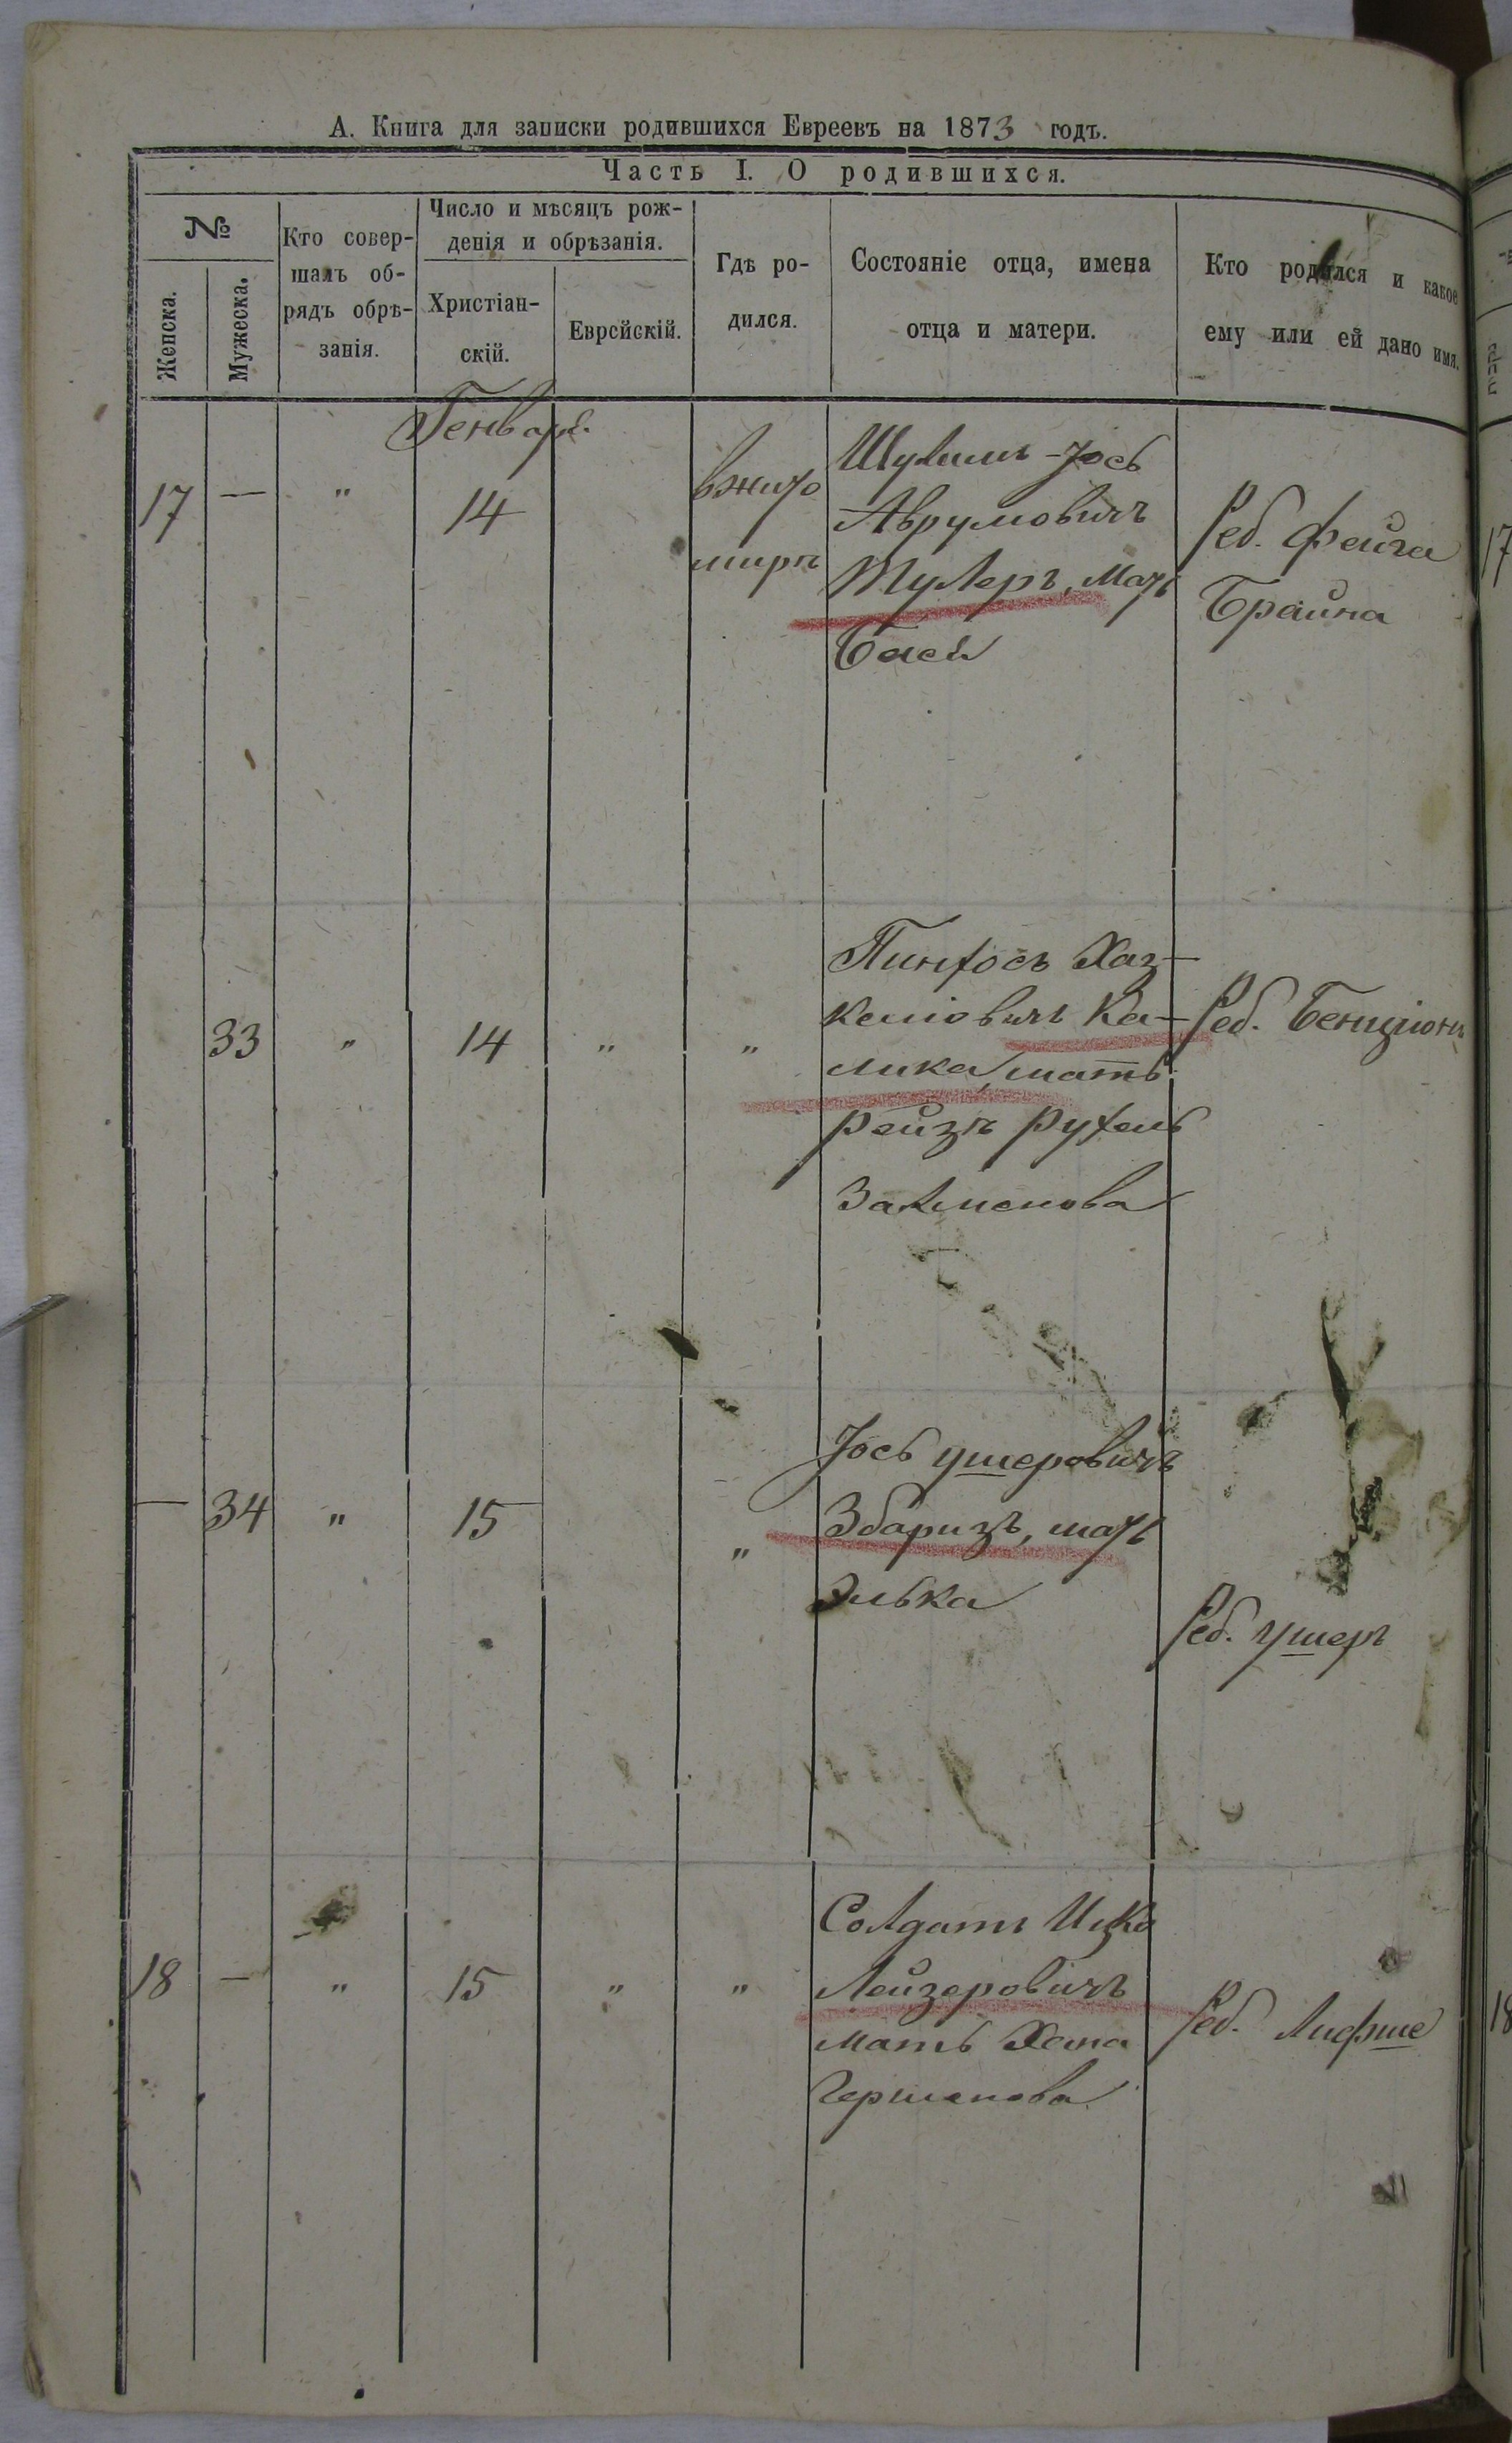 А. Книга для записки родившихся Евреевъ на 1873 годъ.
Часть I. О родившихся.
№
Женска.
Мужеска.
Кто совер-
шалъ об-
рядъ обрѣ-
занія.
Число и мѣсяцъ рож-
денія и обрѣзанія.
Христіан-
скій.
Еврейскій.
Гдѣ ро-
дился.
Состояніе отца, имена
отца и матери.
Кто родился и какое
ему или ей дано имя.
Генваря
17 — " 14
вжито
мирѣ
Шулимъ-Іось
Аврумовичъ
Туллеръ, мать
Бася
Реб. Фейга
Брайна
17
33 " 14 " "
Пинхосъ Хаз-
келіовичъ Ка-
лика, мать
Рейзъ Рухель
Залменова
Реб. Бенціонъ
— 34 " 15 "
Іось Ушеровичъ
Збаризъ, мать
Элька
Реб. Ушеръ
18 — " 15 " "
Солдатъ Ицко
Лейзеровичъ
мать Хана
Гершенова
Реб. Лифше
18